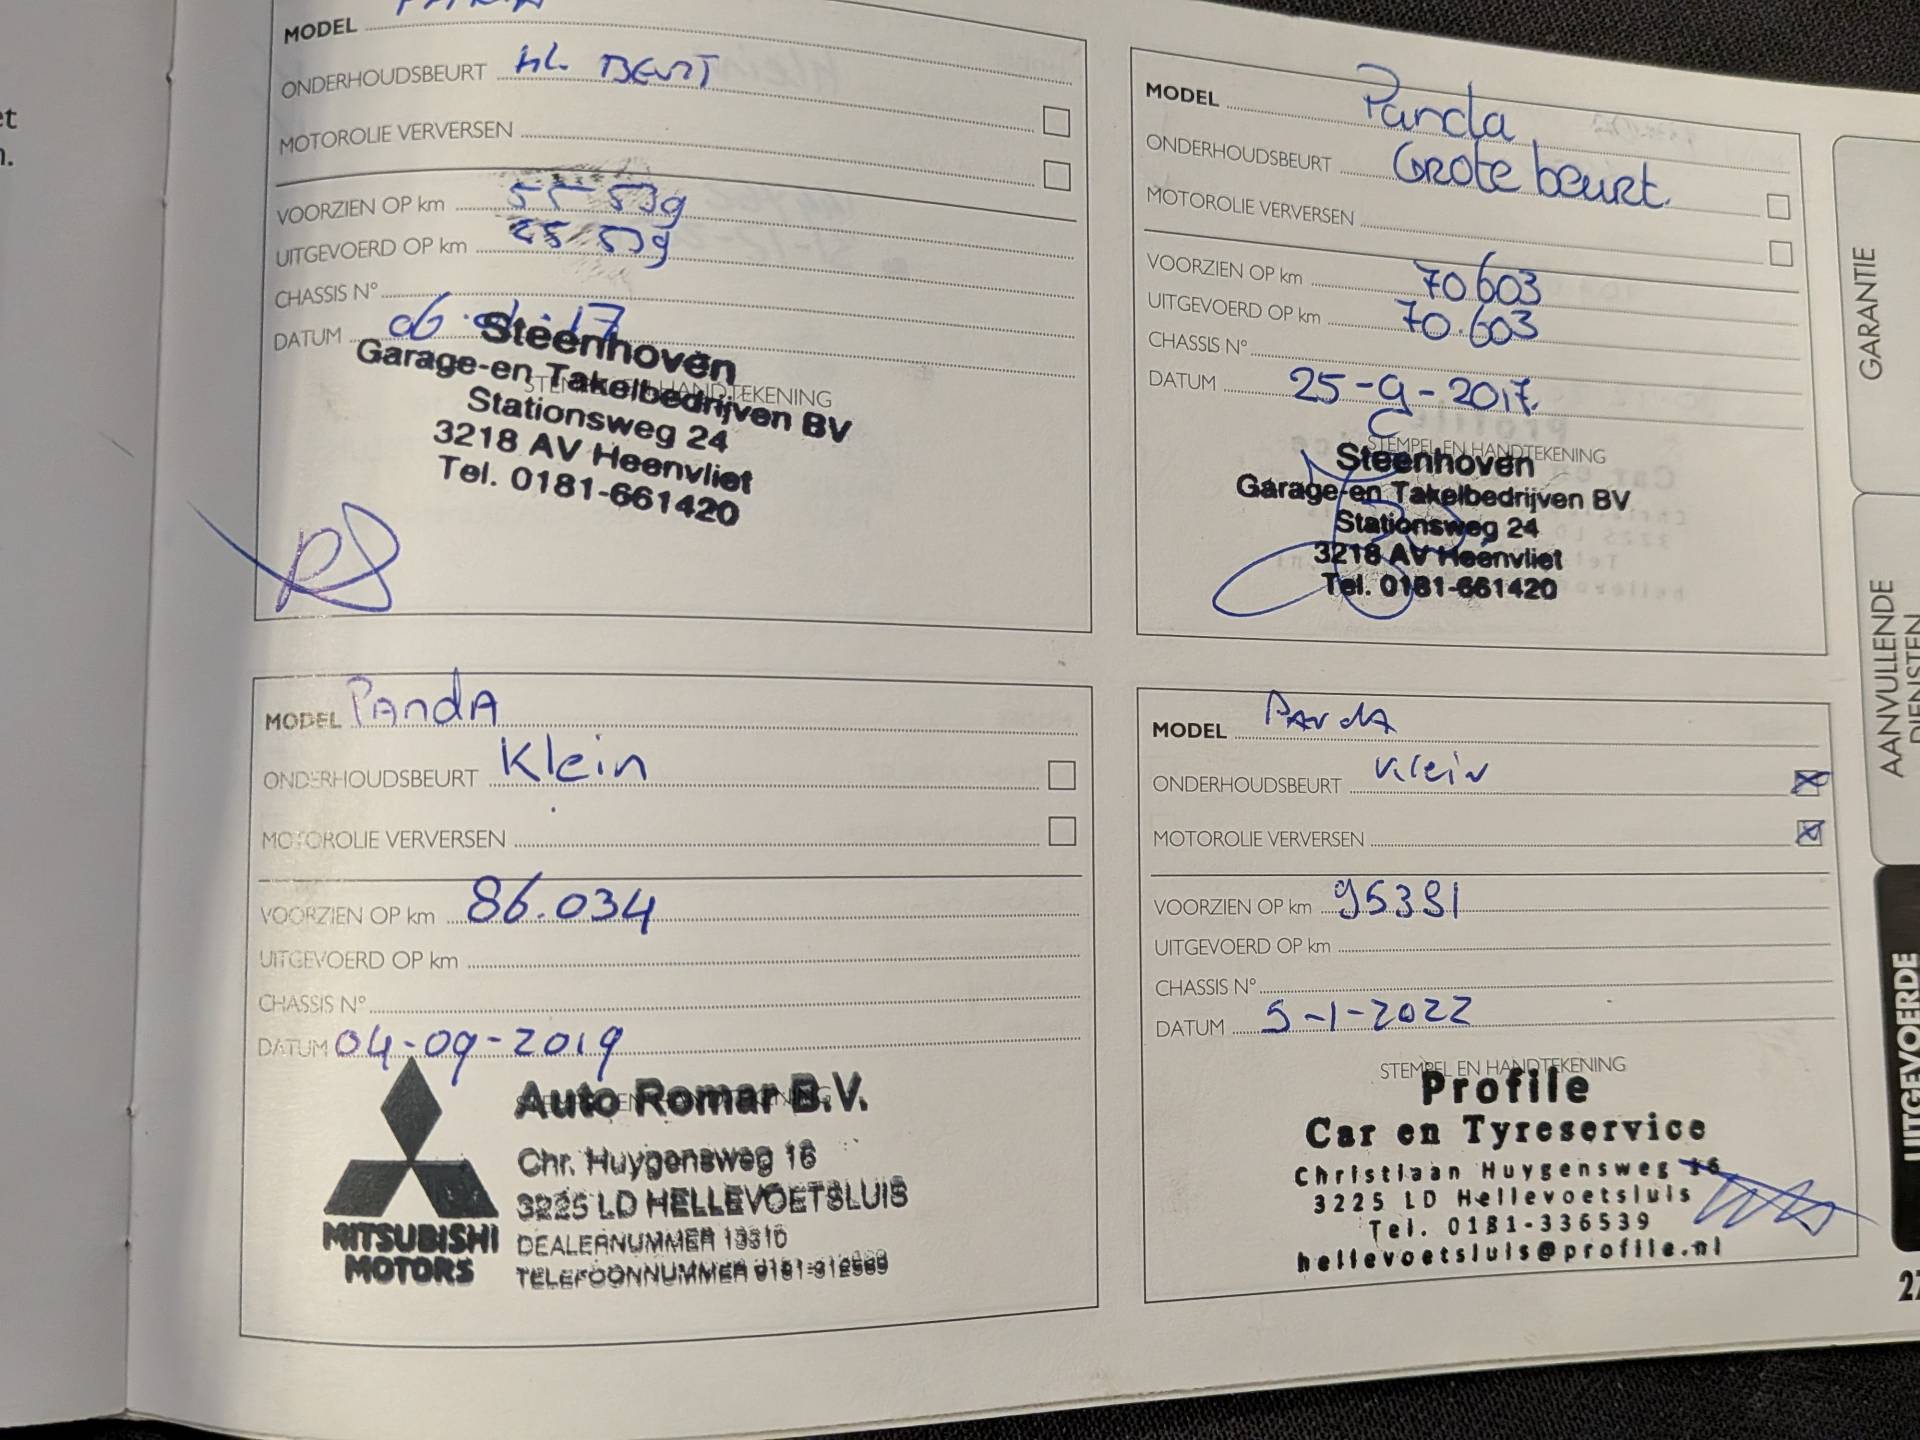 et
n.
MODEL
ONDERHOUDSBEURT kl. BEURT
MOTOROLIE VERVERSEN
VOORZIEN OP km 55 539
UITGEVOERD OP km 55 539
CHASSIS N°
DATUM 06 17
STEMPEL EN HANDTEKENING
Steenhoven
Garage-en Takelbedrijven BV
Stationsweg 24
3218 AV Heenvliet
Tel. 0181-661420
MODEL Panda
ONDERHOUDSBEURT Grote beurt.
MOTOROLIE VERVERSEN
VOORZIEN OP km 70603
UITGEVOERD OP km 70.603
CHASSIS N°
DATUM 25-9-2017.
STEMPEL EN HANDTEKENING
Steenhoven
Garage-en Takelbedrijven BV
Stationsweg 24
3218 AV Heenvliet
Tel. 0181-661420
MODEL PandA
ONDERHOUDSBEURT Klein
MOTOROLIE VERVERSEN
VOORZIEN OP km 86.034
UITGEVOERD OP km
CHASSIS N°
DATUM 04-09-2019
Auto Romar B.V.
Chr. Huygensweg 16
3225 LD HELLEVOETSLUIS
DEALERNUMMER 13310
TELEFOONNUMMER
MITSUBISHI
MOTORS
MODEL PandA
ONDERHOUDSBEURT Klein
MOTOROLIE VERVERSEN
VOORZIEN OP km 95381
UITGEVOERD OP km
CHASSIS N°
DATUM 5-1-2022
STEMPEL EN HANDTEKENING
Profile
Car en Tyreservice
Christiaan Huygensweg 16
3225 LD Hellevoetsluis
Tel. 0181-336539
hellevoetsluis@profile.nl
GARANTIE
AANVULLENDE
DIENSTEN
UITGEVOERDE
27